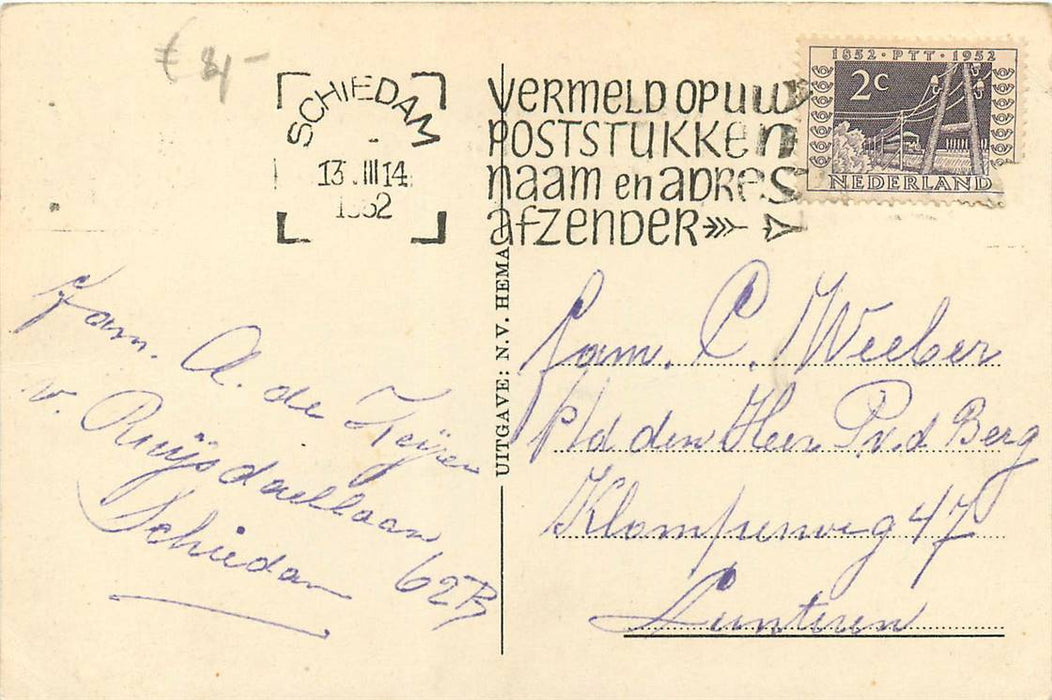 € 8,-
SCHIEDAM
13.III14
1952
VERMELD OP UW
POSTSTUKKEN
NAAM EN ADRES
AFZENDER
1852·PTT·1952
2c
NEDERLAND
UITGAVE: N.V. HEMA
Fam. A. de Keijzer
v. Ruijsdaellaan 62B
Schiedam
Fam. C. Weeber
p/a den Heer P. v.d Berg
Klomperweg 47
Lunteren